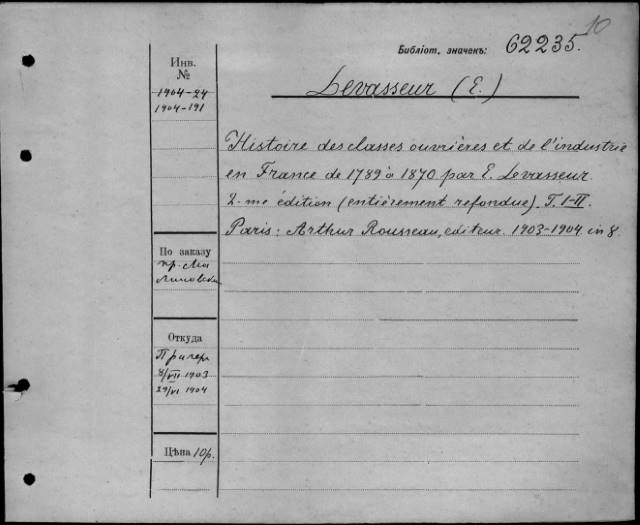 10
Библіот. значекъ: 62235.
Levasseur (E.)
Инв.
№
1904-24
1904-191
Histoire des classes ouvrières et de l'industrie
en France de 1789 à 1870 par E. Levasseur.
2-me édition (entièrement refondue). T. I-II.
Paris: Arthur Rousseau, editeur. 1903-1904. in 8.
По заказу
пр. Ма
Откуда
Прагер
8/VII 1903
29/VI 1904
Цѣна 10р.